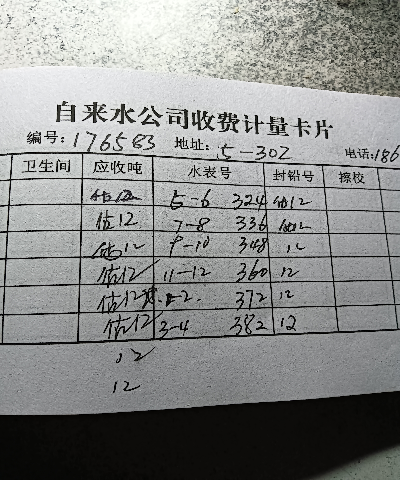 自来水公司收费计量卡片
编号: 176553 地址: 5-302 电话: 186
卫生间 应收吨 水表号 封铅号 擦校
估12 5-6 324 估12
估12 7-8 336 估12
估12 9-10 348 12
估12 11-12 360 12
估12 1-2 372 12
估12 3-4 382 12
12
12